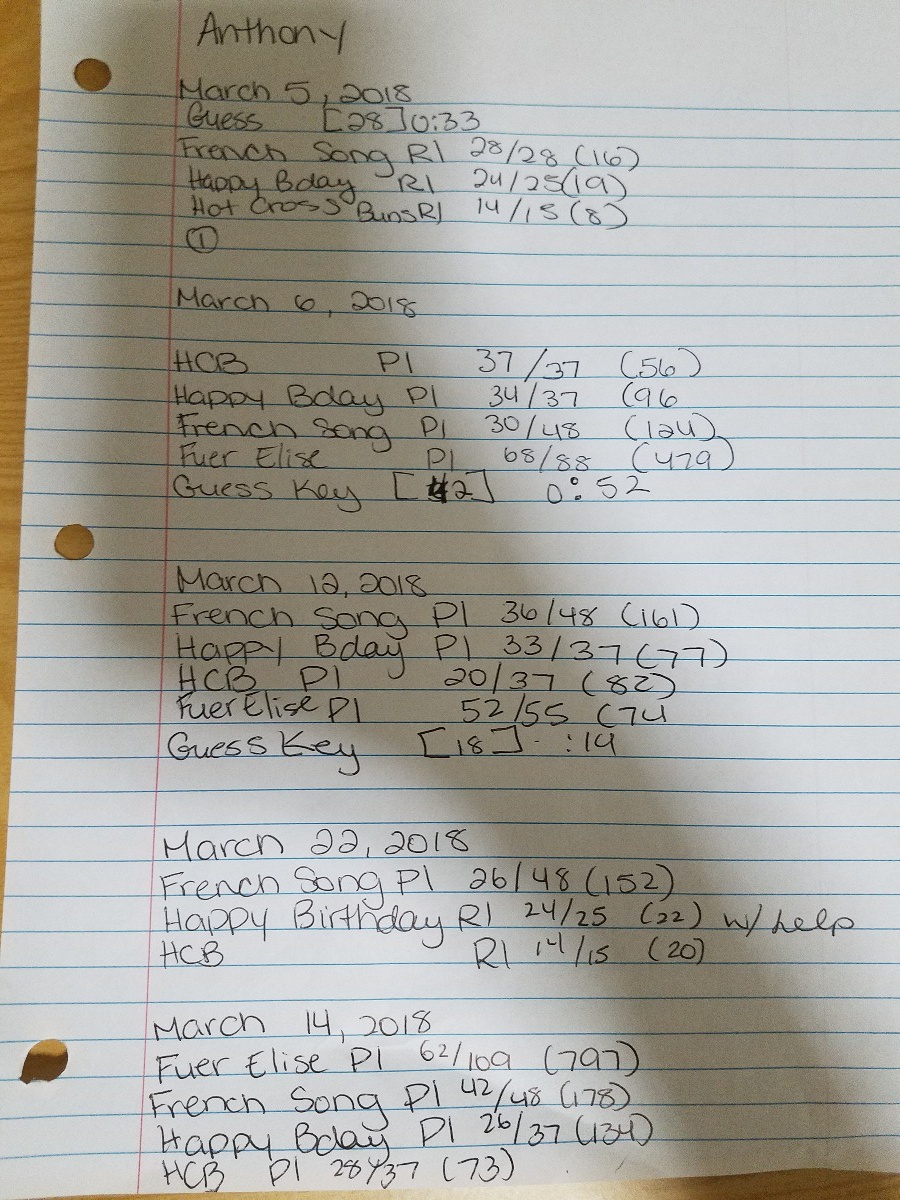 Anthony
March 5, 2018
Guess [28] 0:33
French Song R1 28/28 (16)
Happy Bday R1 24/25 (19)
Hot Cross Buns R1 14/15 (8)
①
March 6, 2018
HCB P1 37/37 (56)
Happy Bday P1 34/37 (96
French Song P1 30/48 (124)
Fuer Elise P1 68/88 (479)
Guess Key [42] 0:52
March 12, 2018
French Song P1 36/48 (161)
Happy Bday P1 33/37 (77)
HCB P1 20/37 (82)
Fuer Elise P1 52/55 (74
Guess Key [18] :19
March 22, 2018
French Song P1 26/48 (152)
Happy Birthday R1 24/25 (22) w/ help
HCB R1 14/15 (20)
March 14, 2018
Fuer Elise P1 62/109 (797)
French Song P1 42/48 (178)
Happy Bday P1 26/37 (134)
HCB P1 28/37 (73)